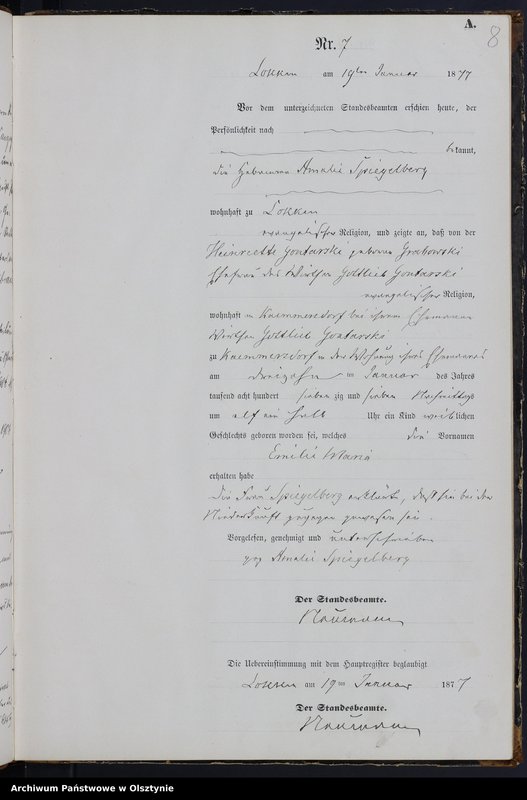 A.
8
Nr. 7
Lokken am 19ten Januar 1877
Vor dem unterzeichneten Standesbeamten erschien heute, der
Persönlichkeit nach
bekannt,
die Hebamme Amalie Spiegelberg
wohnhaft zu Lokken
evangelischer Religion, und zeigte an, daß von der
Heinriette Gontarski geborene Grabowski
Ehefrau des Wirthen Gottlieb Gontarski
evangelischer Religion,
wohnhaft in Kaemmersdorf bei ihrem Ehemanne
Wirthen Gottlieb Gontarski
zu Kaemmersdorf in der Wohnung ihres Ehemannes
am dreizehn ten Januar des Jahres
tausend acht hundert sieben zig und sieben Nachmittags
um elf ein halb Uhr ein Kind weiblichen
Geschlechts geboren worden sei, welches die Vornamen
Emilie Marie
erhalten habe
Die Frau Spiegelberg erklärte, daß sie bei der
Niederkunft zugegen gewesen sei.
Vorgelesen, genehmigt und unterschrieben
gez Amalie Spiegelberg
Der Standesbeamte.
Naumann
Die Uebereinstimmung mit dem Hauptregister beglaubigt
Lokken am 19ten Januar 1877
Der Standesbeamte.
Naumann
Archiwum Państwowe w Olsztynie